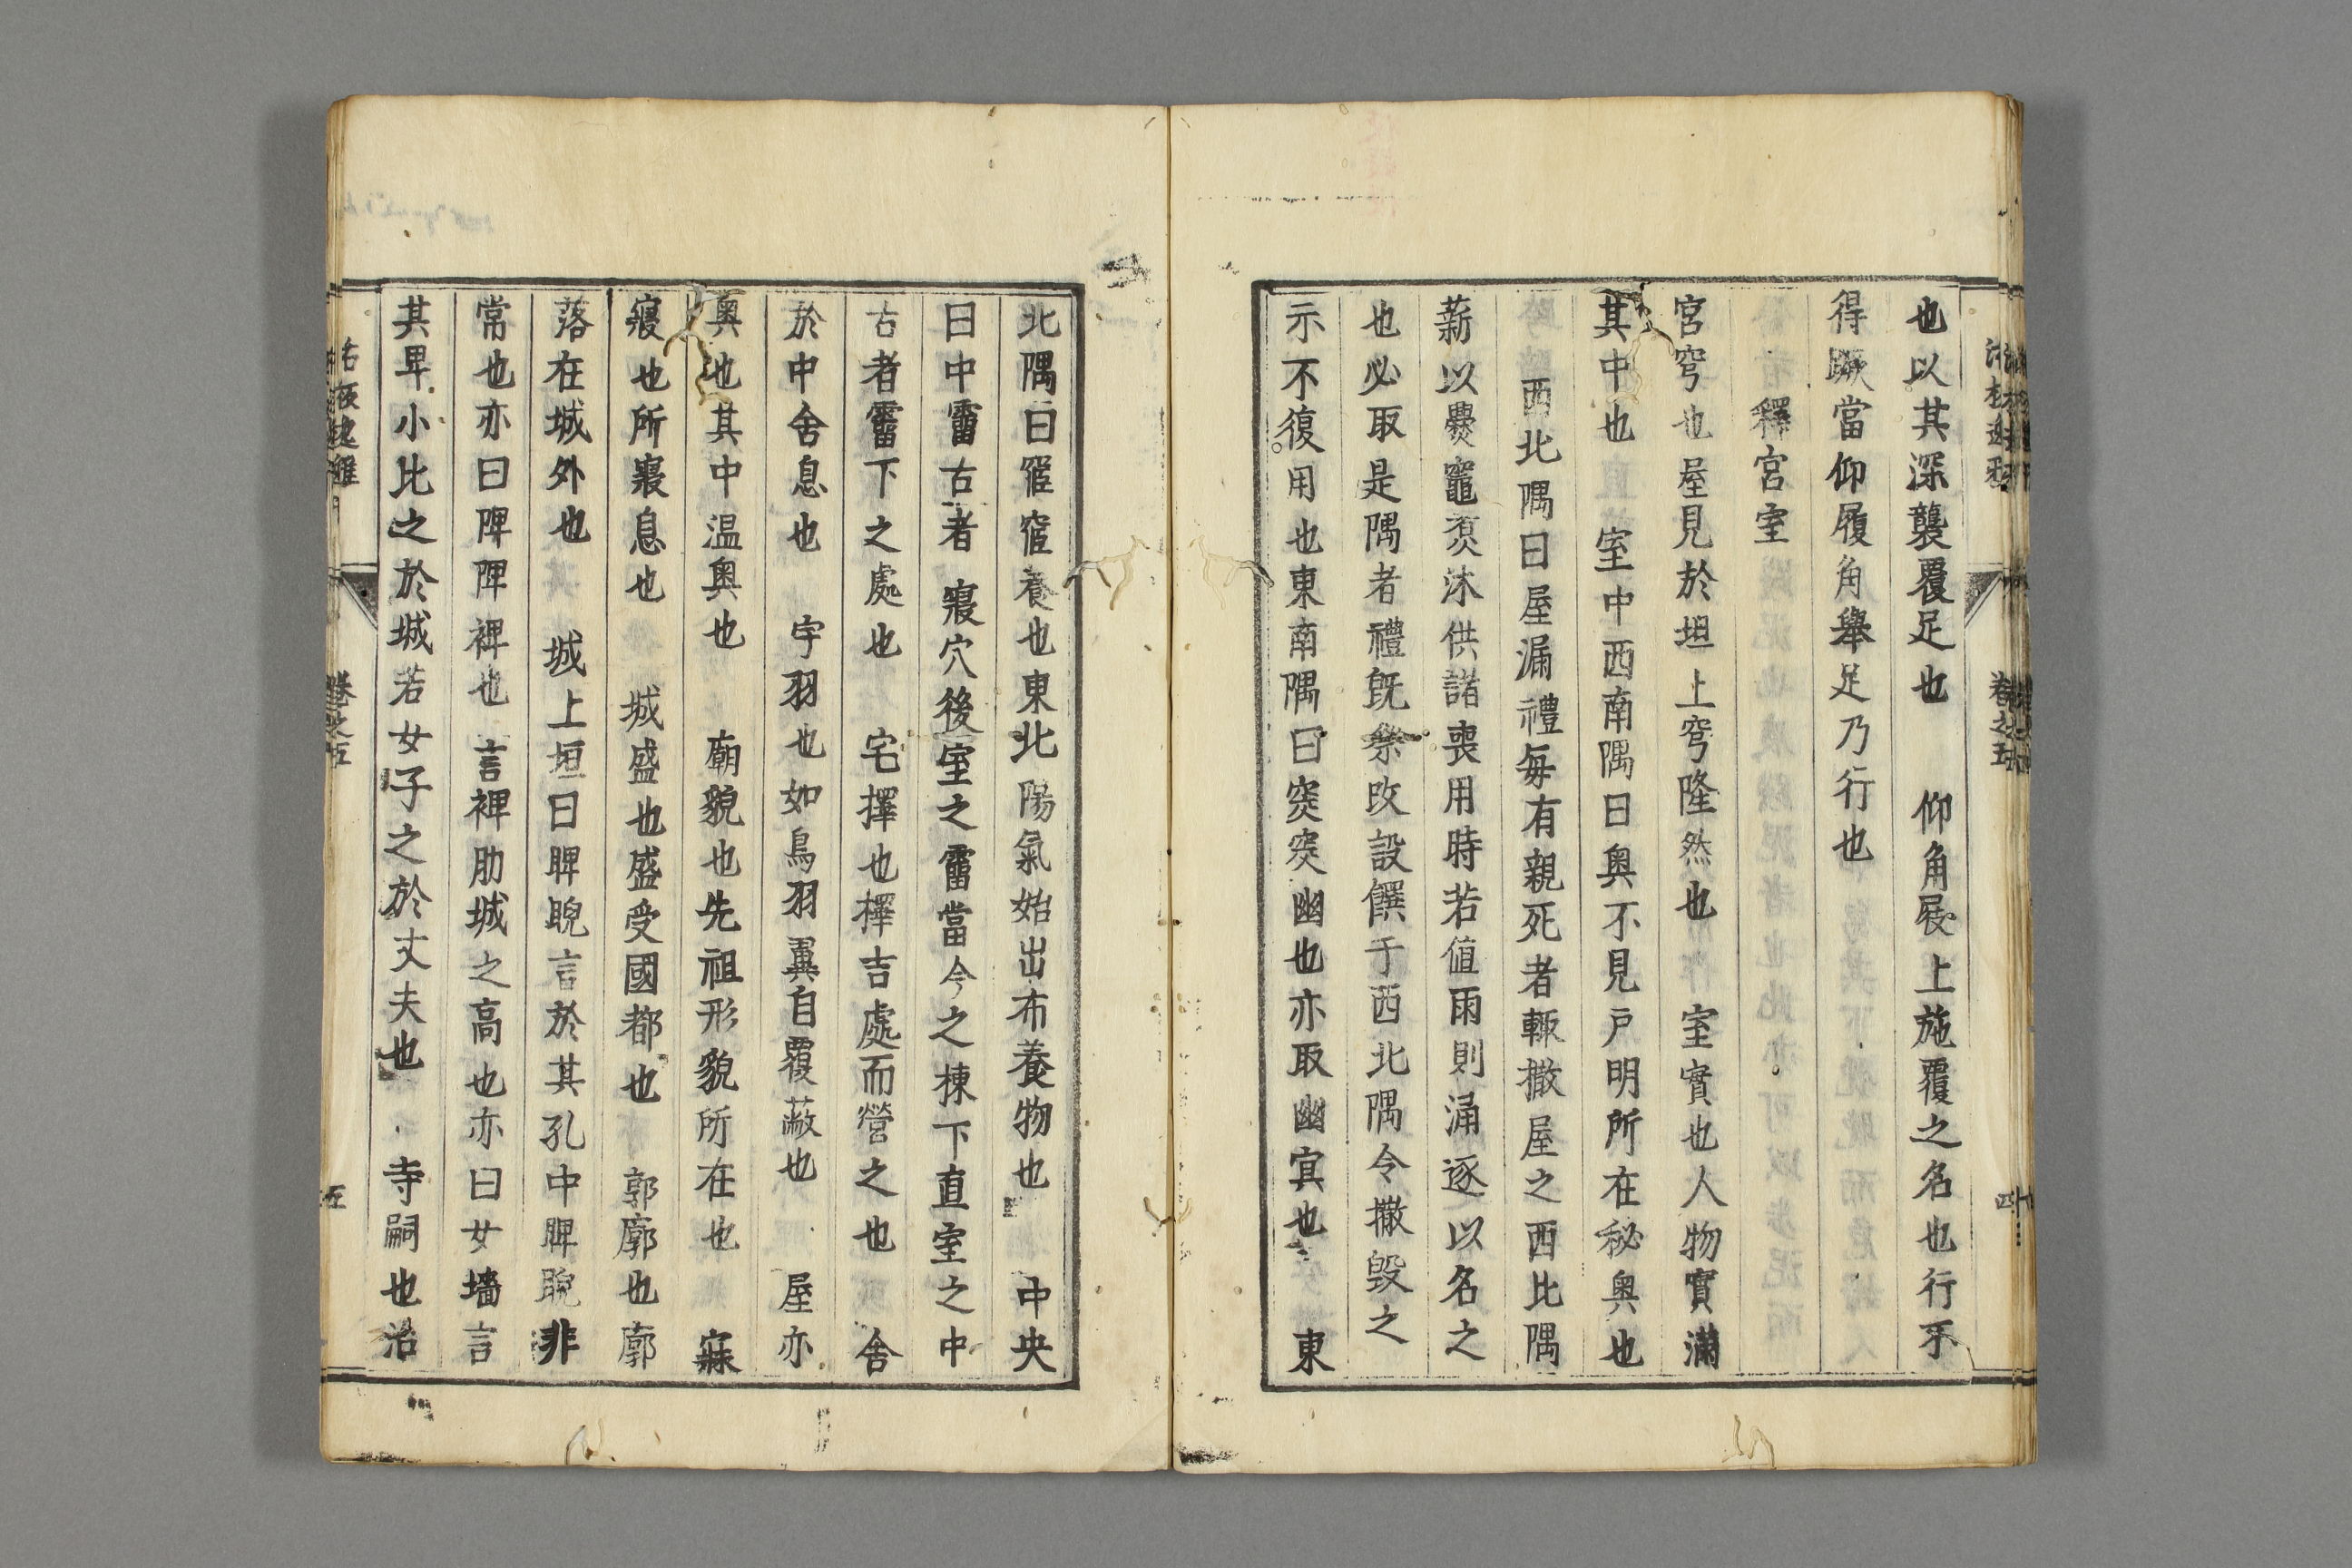 也以其深襲覆足也　仰角屐上施覆之名也行不
得蹶當仰履角舉足乃行也
釋宮室
宮穹也屋見於垣上穹隆然也　室實也人物實滿
其中也　室中西南隅曰奧不見戶明所在秘奧也
西北隅曰屋漏禮每有親死者輒撤屋之西比隅
薪以爨竈煑沐供諸喪用時若值雨則漏逐以名之
也必取是隅者禮旣祭改設饌于西北隅令撤毀之
示不復用也東南隅曰窔窔幽也亦取幽冥也　東
北隅曰宧宧養也東北陽氣始出布養物也　中央
曰中霤古者寢穴後室之霤當今之棟下直室之中
古者霤下之處也　宅擇也擇吉處而營之也　舍
於中舍息也　宇羽也如鳥羽翼自覆蔽也　屋亦
奧也其中温奧也　廟貌也先祖形貌所在也　寢
寢也所寢息也　城盛也盛受國都也　郭廓也廓
落在城外也　城上垣曰睥睨言於其孔中睥睨非
常也亦曰陴陴裨也　言裨助城之高也亦曰女墻言
其卑小比之於城若女子之於丈夫也　寺嗣也治
卷之五